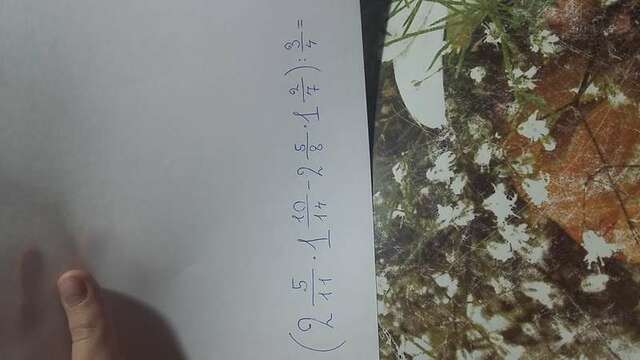 (2 5/11 · 1 10/14 - 2 5/8 · 1 2/7) : 3/4 =